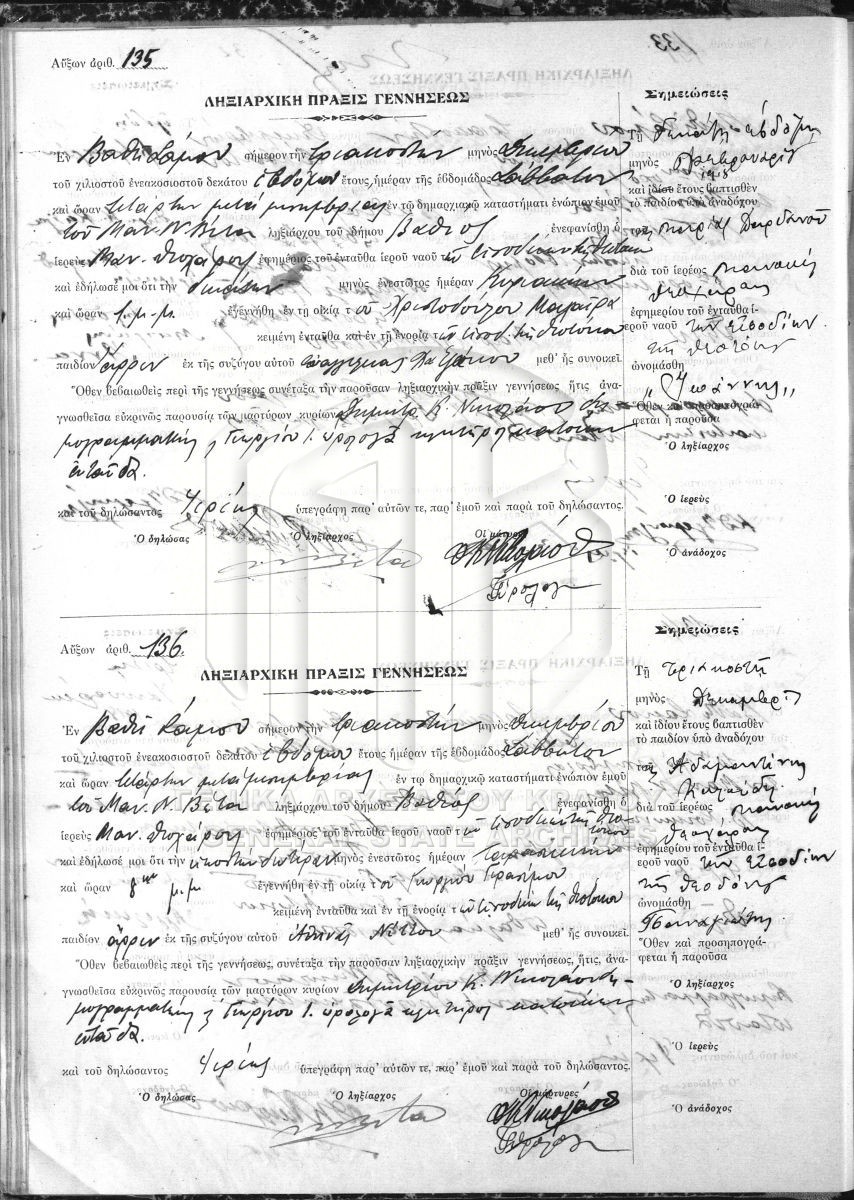 Αὔξων ἀριθ. 135
ΛΗΞΙΑΡΧΙΚΗ ΠΡΑΞΙΣ ΓΕΝΝΗΣΕΩΣ
Ἐν Βαθεῖ Σάμου σήμερον τὴν τριακοστὴν μηνὸς Δεκεμβρίου
τοῦ χιλιοστοῦ ἐνεακοσιοστοῦ δεκάτου ἑβδόμου ἔτους, ἡμέραν τῆς ἑβδομάδος Σάββατον
καὶ ὥραν τετάρτην μετὰ μεσημβρίαν ἐν τῷ δημαρχικῷ καταστήματι ἐνώπιον ἐμοῦ
τοῦ Μαν. Ν. Βέτα ληξιάρχου τοῦ δήμου Βαθέος ἐνεφανίσθη ὁ
ἱερεὺς Μαν. Θεοχάρους ἐφημέριος τοῦ ἐνταῦθα ἱεροῦ ναοῦ τῶν Εἰσοδίων τῆς Θεοτόκου
καὶ ἐδήλωσέ μοι ὅτι τὴν δεκάτην μηνὸς ἐνεστῶτος ἡμέραν Κυριακὴν
καὶ ὥραν μ.μ. ἐγεννήθη ἐν τῇ οἰκίᾳ τοῦ Χριστοδούλου
κειμένῃ ἐνταῦθα καὶ ἐν τῇ ἐνορίᾳ τῶν Εἰσοδ. τῆς Θεοτόκου
παιδίον ἄρρεν ἐκ τῆς συζύγου αὐτοῦ Εὐαγγελίας μεθ᾽ ἧς συνοικεῖ.
Ὅθεν βεβαιωθεὶς περὶ τῆς γεννήσεως συνέταξα τὴν παροῦσαν ληξιαρχικὴν πρᾶξιν γεννήσεως ἥτις ἀνα-
γνωσθεῖσα εὐκρινῶς παρουσίᾳ τῶν μαρτύρων κυρίων Δημητρ. Κ. Νικολάου δη-
μογραμματέως & Γεωργίου Ι. ὡρολογᾶ κατοίκων
ἐνταῦθα.
καὶ τοῦ δηλώσαντος ἱερέως ὑπεγράφη παρ᾽ αὐτῶν τε, παρ᾽ ἐμοῦ καὶ παρὰ τοῦ δηλώσαντος.
Ὁ δηλώσας Ὁ ληξίαρχος Οἱ μάρτυρες
Σημειώσεις
Τῇ
μηνὸς Φεβρουαρίου
1918
καὶ ἰδίου ἔτους βαπτισθὲν
τὸ παιδίον ὑπὸ ἀναδόχου
διὰ τοῦ ἱερέως Μανουὴλ
Θεοχάρους
ἐφημερίου τοῦ ἐνταῦθα ἱ-
εροῦ ναοῦ τῶν Εἰσοδίων
τῆς Θεοτόκου
ὠνομάσθη
„Ἰωάννης„
Ὅθεν καὶ προσηπογρά-
φεται ἡ παροῦσα
Ὁ ληξίαρχος
Ὁ ἱερεὺς
Ὁ ἀνάδοχος
Αὔξων ἀριθ. 136.
ΛΗΞΙΑΡΧΙΚΗ ΠΡΑΞΙΣ ΓΕΝΝΗΣΕΩΣ
Ἐν Βαθεῖ Σάμου σήμερον τὴν τριακοστὴν μηνὸς Δεκεμβρίου
τοῦ χιλιοστοῦ ἐνεακοσιοστοῦ δεκάτου ἑβδόμου ἔτους ἡμέραν τῆς ἑβδομάδος Σάββατον
καὶ ὥραν τετάρτην μετὰ μεσημβρίας ἐν τῷ δημαρχικῷ καταστήματι ἐνώπιον ἐμοῦ
τοῦ Μαν. Ν. Βέτα ληξιάρχου τοῦ δήμου Βαθέος ἐνεφανίσθη ὁ
ἱερεὺς Μαν. Θεοχάρους ἐφημέριος τοῦ ἐνταῦθα ἱεροῦ ναοῦ τῶν Εἰσοδίων τῆς Θεοτόκου
καὶ ἐδήλωσέ μοι ὅτι τὴν εἰκοστὴν δευτέραν μηνὸς ἐνεστῶτος ἡμέραν Παρασκευὴν
καὶ ὥραν 8ην μ.μ. ἐγεννήθη ἐν τῇ οἰκίᾳ τοῦ Γεωργίου
κειμένῃ ἐνταῦθα καὶ ἐν τῇ ἐνορίᾳ τῶν Εἰσοδίων τῆς Θεοτόκου
παιδίον ἄρρεν ἐκ τῆς συζύγου αὐτοῦ Ἀθηνᾶς μεθ᾽ ἧς συνοικεῖ.
Ὅθεν βεβαιωθεὶς περὶ τῆς γεννήσεως, συνέταξα τὴν παροῦσαν ληξιαρχικὴν πρᾶξιν γεννήσεως, ἥτις, ἀνα-
γνωσθεῖσα εὐκρινῶς παρουσίᾳ τῶν μαρτύρων κυρίων Δημητρίου Κ. Νικολάου δη-
μογραμματέως & Γεωργίου Ι. ὡρολογᾶ κατοίκων
ἐνταῦθα.
καὶ τοῦ δηλώσαντος ἱερέως ὑπεγράφη παρ᾽ αὐτῶν τε, παρ᾽ ἐμοῦ καὶ παρὰ τοῦ δηλώσαντος.
Ὁ δηλώσας Ὁ ληξίαρχος Οἱ μάρτυρες
Σημειώσεις
Τῇ τριακοστῇ
μηνὸς Δεκεμβρίου
καὶ ἰδίου ἔτους βαπτισθὲν
τὸ παιδίον ὑπὸ ἀναδόχου
διὰ τοῦ ἱερέως Μανουὴλ
Θεοχάρους
ἐφημερίου τοῦ ἐνταῦθα ἱ-
εροῦ ναοῦ τῶν Εἰσοδίων
τῆς Θεοτόκου
ὠνομάσθη
Παναγιώτης.
Ὅθεν καὶ προσηπογρά-
φεται ἡ παροῦσα
Ὁ ληξίαρχος
Ὁ ἱερεὺς
Ὁ ἀνάδοχος
ΓΕΝΙΚΑ ΑΡΧΕΙΑ ΤΟΥ ΚΡΑΤΟΥΣ
GENERAL STATE ARCHIVES